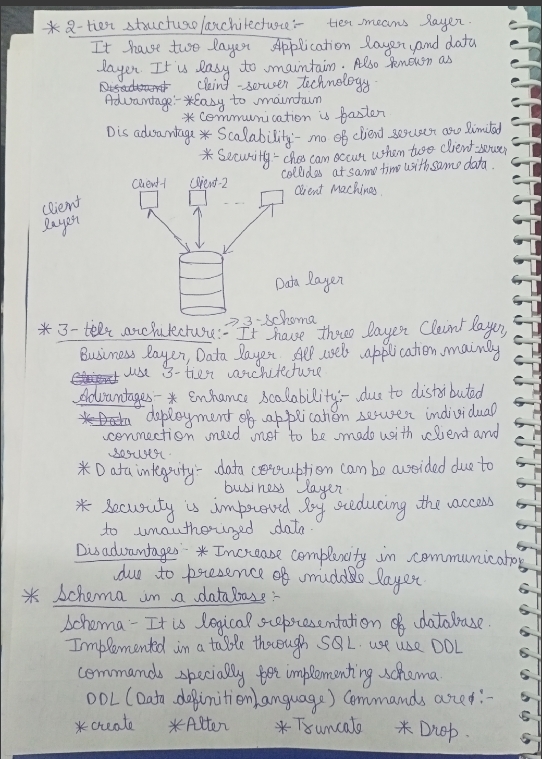 * 2-tier structure/architecture:- tier means layer.
It have two layer Application layer, and data
layer. It is easy to maintain. Also known as
cleint-server technology.
Advantage:- *Easy to maintain
* Communication is faster
Dis advantage * Scalability:- no of client server are limited
* Security:- chos can occur when two client-server
collides at same time with same data.
Client-1 Client-2 --- Client Machines
Client
layer
Data layer
→ 3-schema
* 3-tier architecture:- It have three layer Cleint layer,
Business layer, Data layer. All web application mainly
use 3-tier architecture
Advantages:- * Enhance Scalability:- due to distributed
deployment of application server individual
connection need not to be made with client and
server.
* Data integrity:- data corruption can be avoided due to
business layer
* Security is improved by reducing the access
to unauthorized data.
Disadvantages:- * Increase complexity in communication
due to presence of middle layer.
* Schema in a database:-
Schema - It is logical representation of database.
Implemented in a table through SQL. we use DDL
commands specially for implementing schema.
DDL (Data definition Language) Commands are:-
* create * Alter * Truncate * Drop.